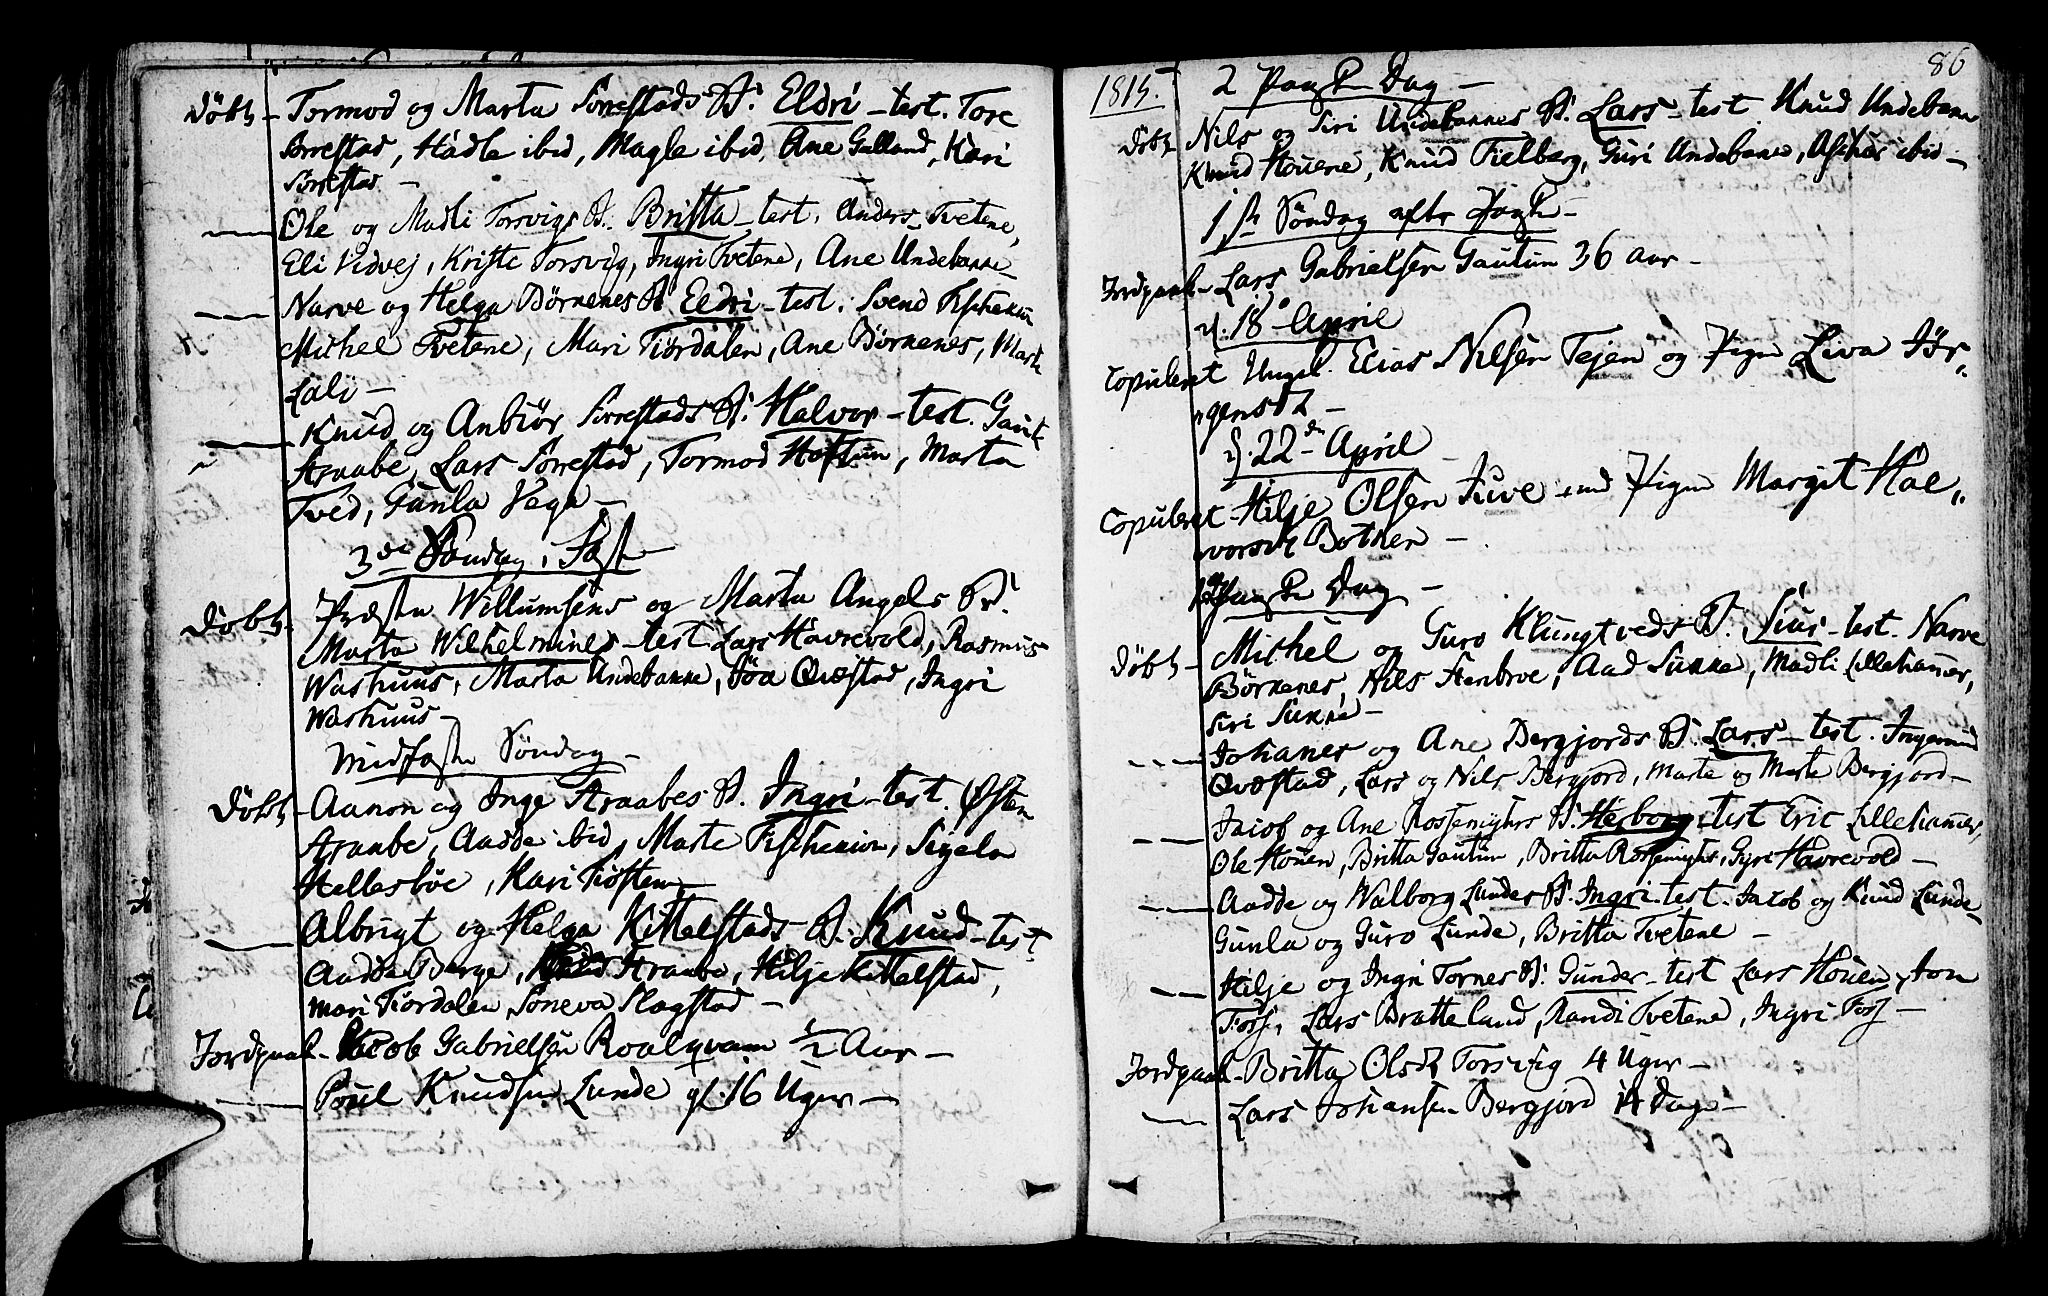 Döbt - Tormod og Marta Sørrestads B: Eldri - test. Tore
Sørrestad, Hadle ibid, Magle ibid, Ane Galland, Kari
Sørrestad -
Ole og Madli Torsvigs B: Britta - test. Anders Tvetene,
Eli Vidvej, Kriste Torsvig, Ingri Tvetene, Ane Undebakke -
Narve og Helga Börkenes B: Eldri - test: Svend
Michel Tvetene, Mari Fiördalen, Ane Börkenes, Marte
Lali -
Knud og Anbiör Sørrestads B: Halvor - test.
Straabe, Lars Sørrestad, Tormod Hoftun, Marta
Tved, Gunla Vega -
3de Söndag i Fast
Döbt - Præsten Willumsens og Marta Angels B:
Marta Wilhelmines - test Lars Havrevold, Rasmus
Washuus, Marta Undebakke, Jöa Qvæstad, Ingri
Washuus -
Midfaste Söndag -
Döbt - Aamon og Inge Straabes B. Ingri - test. Østen
Straabe, Aadde ibid, Marte
Hellesböe, Kari
Albrigt og Helga Kittelstads B. Knud - test
Aadde Berge, Straabe, Hilje Kittelstad,
Mari Fiördalen, Soneva Slagstad -
Jordpaak - Jacob Gabrielsen Roalqvam 1/2 Aar -
Poul Knudsen Lunde gl. 16 Uger -
86
1815.
2 Paaske Dag -
Döbt Nils og Siri Undebakkes B. Lars - test Knud Undebakke
Knud Houene, Knud Fielberg, Guri Undebakke, ibid -
1ste Söndag efter Paaske -
Jordpaak - Lars Gabrielsen Gautun 36 aar -
d. 18 April
Copuleret Ungk. Elias Nilsen Tejen og Pigen Liva Jör„
„gensdr -
d. 22de April
Copuleret - Hilje Olsen Juve med Pigen Margit Hal„
„vorsdr Botnen -
Dag -
Döbt - Michel og Guro Klungtveds B. Siur - test. Narve
Börkenes, Nils Stenbroe, Aad Sukke, Madli Lillehamer,
Siri Sukke -
Johanes og Ane Bergjords B. Lars - test. Ingemund
Qvæstad, Lars og Nils Bergjord, Marte og Marte Bergjord -
Jacob og Ane B. Herborg - test Eric Lillehamer,
Ole Houen, Britta Gautun, Britta Gyri Havrevold -
Aadde og Walborg Lundes B. Ingri - test. Jacob og Knud Lunde -
Gunla og Guro Lunde, Britta Tvetene -
Hilje og Ingri Tornes B. Gunder - test Lars Houen, Jon
Foss, Lars Bratteland, Randi Tvetene, Ingri Foss -
Jordpaak - Britta Olsdr Torsvig 4 Uger -
Lars Johansen Bergjord 14 Dage -